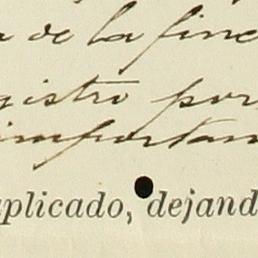 de la finc
gistro por
importan
plicado, dejand